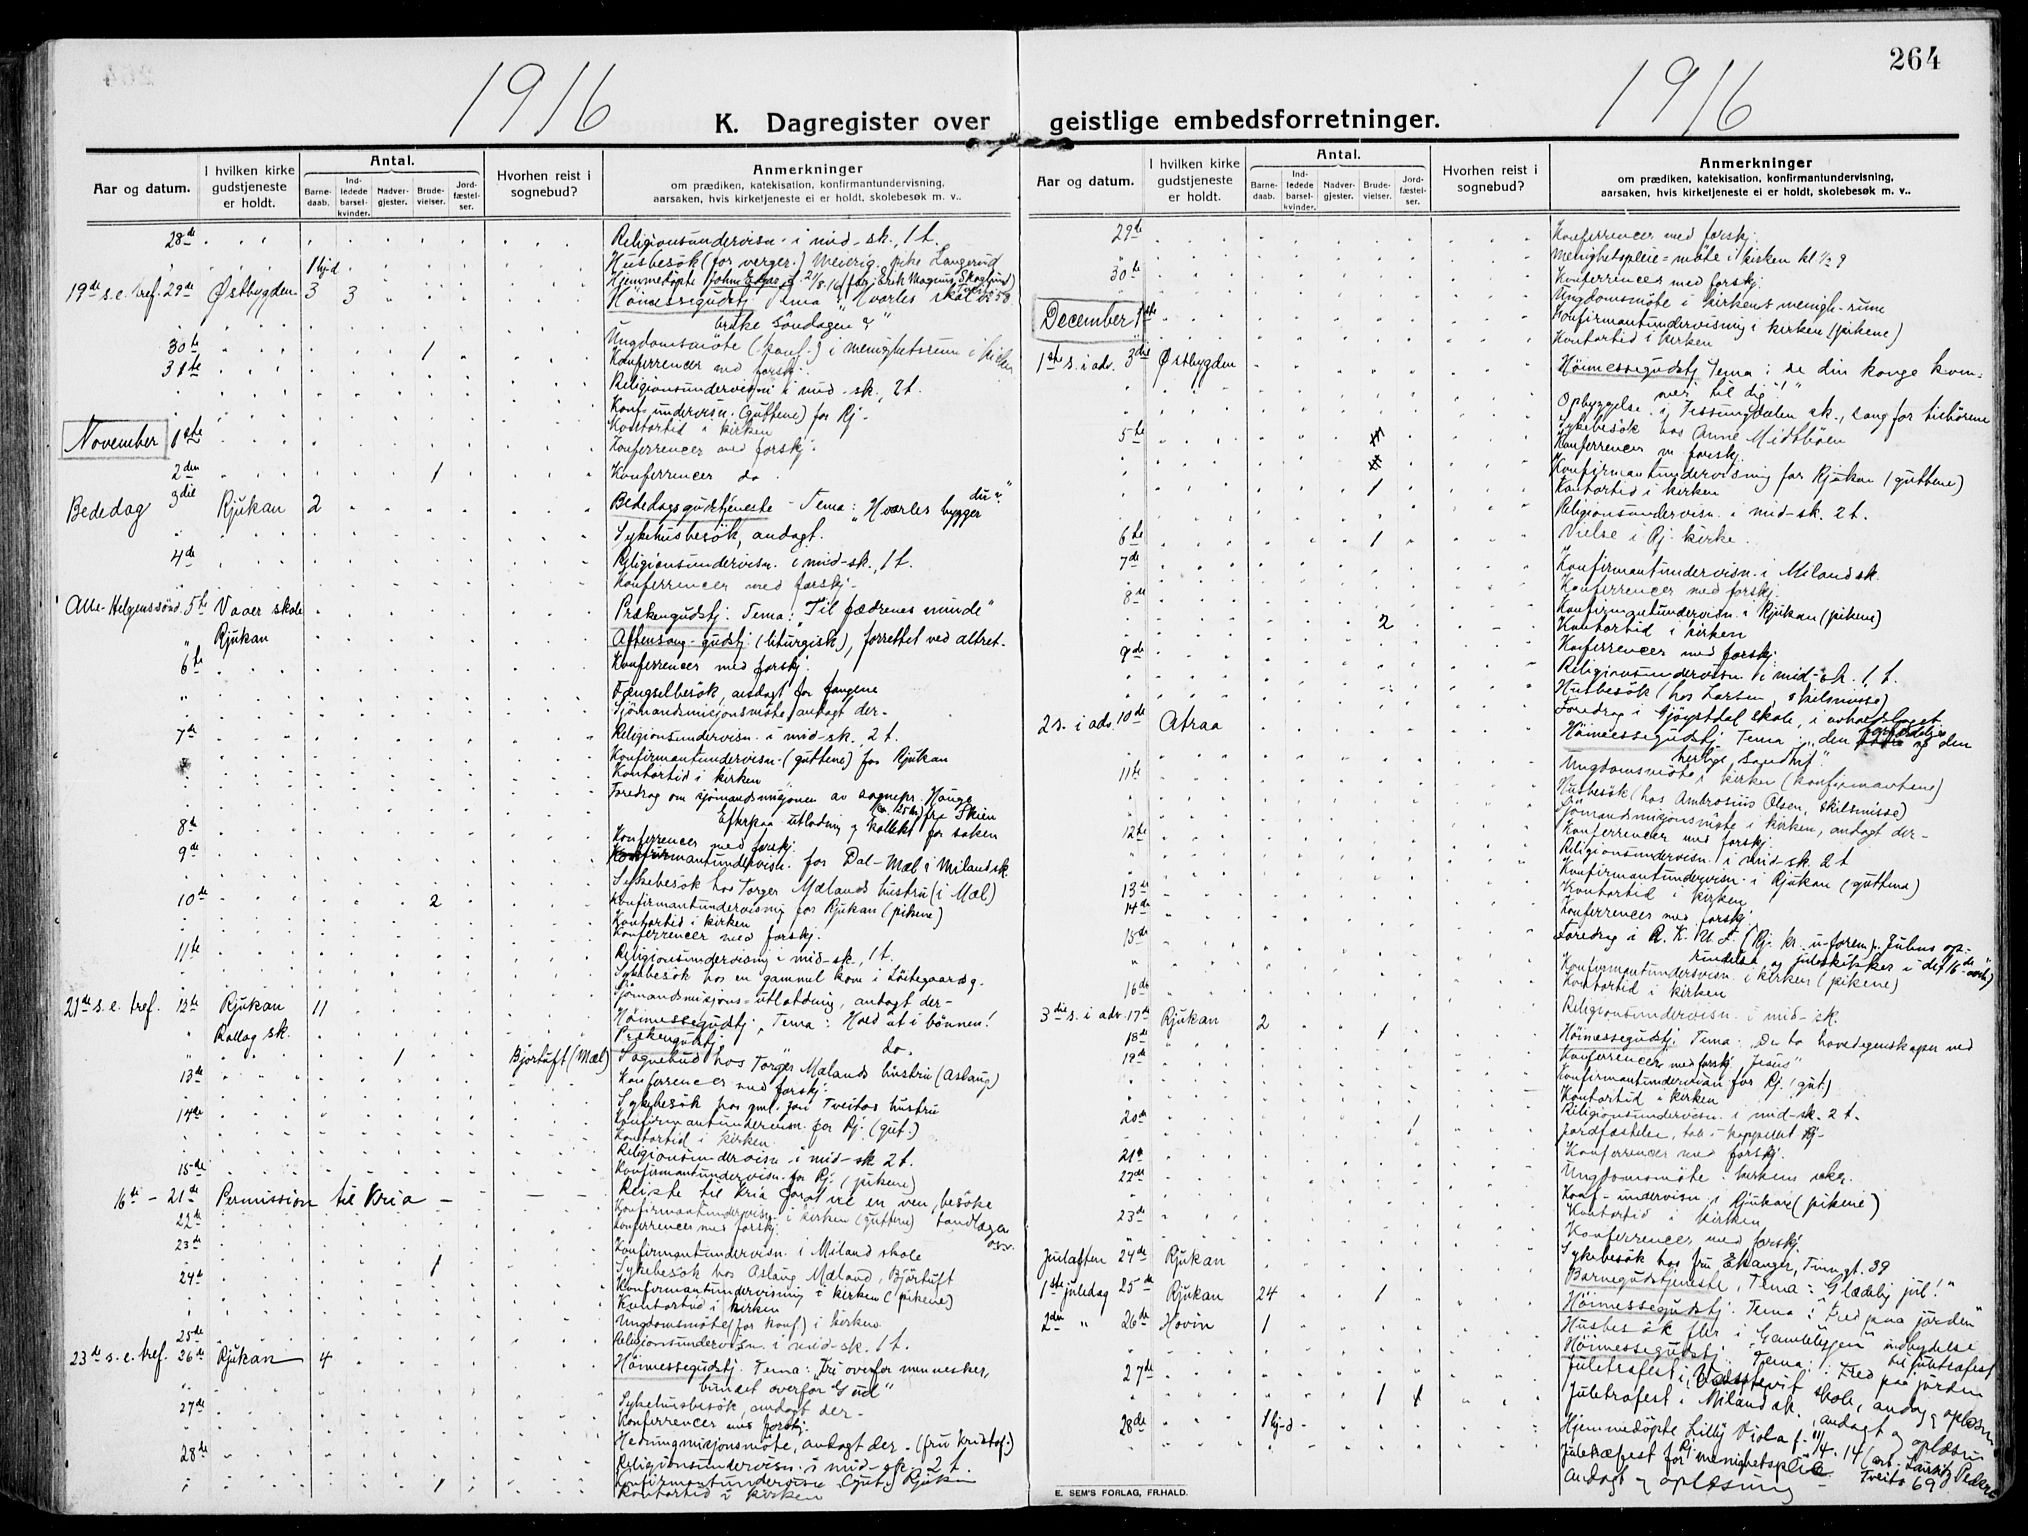 264
1916
1916
K. Dagregister over geistlige embedsforretninger.
Aar og datum.
I hvilken kirke gudstjeneste er holdt.
Antal.
Barne-daab.
Ind-ledede barsel-kvinder.
Nadver-gjester.
Brude-vielser.
Jord-fæstel-ser.
Hvorhen reist i sognebud?
Anmerkninger
om prædiken, katekisation, konfirmantundervisning,
aarsaken, hvis kirketjeneste ei er holdt, skolebesøk m. v..
28de Religionsundervisn. i mid-sk., 1 t.
Husbesök (for verger.)
1 hj-d Hjemmedöpte
19de s.e. tref. 29de Østbygden 3 3 Höimessegudstj Tema: "Hvorles skal vi
bruke söndagen?"
Ungdomsmöte (konf.) i menighetsrum i kirken
30te 1 Konferrencer med forskj.
31te Religionsundervisn. i mid-sk., 2 t.
Konf-undervisn. (guttene) for Rj-
Kontortid i kirken
November 1ste Konferrencer med forskj.
2den 1 Konferrencer do.
Bededag 3die Rjukan 2 Bededagsgudstjeneste - Tema: "Hvorles bygger du?"
Sykehusbesök, andagt.
4de Religionsundervisn. i mid-sk., 1 t.
Konferrencer med forskj-
Alle-Helgenssönd. 5te Vaaer skole Prækengudstj: Tema: "Til fædrenes minde"
" Rjukan Aftensang-gudstj (liturgisk), forrettet ved altret.
6te Konferrencer med forskj.
" Fængselbesök, andagt for fangene
Sjömandsmisjonsmöte, andagt der-
7de Religionsundervisn. i mid-sk., 2 t.
Konfirmantundervisn. (guttene) for Rjukan
Kontortid i kirken
Foredrag om sjömandsmisjonen av sognepr. Hauge
fra Skien
Efterpaa utlodning og kollekt for saken
8de Konferrencer med forskj.
9de Konfirmantundervisn. for Dal-Mæl i Miland sk.
Sykebesök hos Torger Mælands hustru (i Mæl)
10de 2 Konfirmantundervisning for Rjukan (pikene)
Kontortid i kirken
Konferrencer med forskj.
11te Religionsundervisning i mid-sk., 1 t.
Sykebesök hos en gammel kone i
Sjömandsmisjons-utlodning, andagt der-
21de s.e. tref. 12te Rjukan 11 Höimessegudstj, Tema: Hold ut i bönnen!
" Rollag sk. Prækengudstj. do.
" 1 Bjørtuft (Mæl) Sognebud hos Torger Mælands hustru (Aslaug)
13de Konferrencer med forskj.
Sykebesök hos gml. Jon Tveitos hustru
14de Konfirmantundervisn. for Rj. (gut.)
Kontortid i kirken.
Religionsundervisn. i mid-sk. 2 t.
15de Konfirmantundervisn. for Rj. (pikene)
16de - 21de Permission til Kria - Reiste til Kria for at vie en ven, besöke
tandlæge osv.
22de Konfirmantundervisn. i kirken (guttene)
Konferrencer med forskj.
23de Konfirmantundervisn. i Miland skole
1 Sykebesök hos Aslaug Mæland, Bjørtuft
24de Konfirmantundervisning i kirken (pikene)
Kontortid i kirken
Ungdomsmöte (for konf.) i kirken
25de Religionsundervisn. i mid-sk. 1 t.
23de s.e. tref. 26de Rjukan 4 Höimessegudstj. Tema: "Fri overfor mennesker,
bundet overfor Gud"
Sykehusbesök, andagt der-
27de Konferrencer med forskj.
Hedningmisjonsmöte, andagt der. (fru Kristof.)
28de Religionsundervisn. i mid-sk., 2 t.
1 Konfirmantundervisn. (gut.) Rjukan
Kontortid i kirken
Aar og datum.
I hvilken kirke gudstjeneste er holdt.
Antal.
Barne-daab.
Ind-ledede barsel-kvinder.
Nadver-gjester.
Brude-vielser.
Jord-fæstel-ser.
Hvorhen reist i sognebud?
Anmerkninger
om prædiken, katekisation, konfirmantundervisning,
aarsaken, hvis kirketjeneste ei er holdt, skolebesøk m. v..
29de Konferrencer med forskj.
Menighetspleie-möte i kirken kl ½ 9
30te Konferrencer med forskj.
Ungdomsmöte i kirkens menigh-rum
December 1ste Konfirmantundervisning i kirken (pikene)
Kontortid i kirken
1ste s. i adv. 3die Østbygden Höimessegudstj Tema: "Se din konge kom-
mer til dig!"
Opbyggelse i Tessungdalen sk., sang for tilhörerne
Sykebesök hos Anne Midtböen
5te Konferrencer m forskj.
Konfirmantundervisning for Rjukan (guttene)
1 Kontortid i kirken
Religionsundervisn. i mid-sk. 2 t.
6te 1 Vielse i Rj. kirke.
7de Konfirmantundervisn. i Miland sk.
Konferrencer med forskj.
8de Konfirmantundervisn. i Rjukan (pikene)
2 Kontortid i kirken
Konferrencer med forskj.
9de Religionsundervisn. i mid-sk. 1 t.
Husbesök (hos Larsen, skilsmisse)
Foredrag i Gjöystdal skole, i avholdslaget
2 s. i adv. 10de Atraa Höimessegudstj Tema: "den forfærdelige og den
herlige sandhet"
Ungdomsmöte i kirken (konfirmantene)
11te Husbesök (hos Ambrosius Olsen, skilsmisse)
Sjömandsmisjonsmöte i kirken, andagt der-
Konferrencer med forskj.
12te Religionsundervisn. i mid-sk. 2 t
Konfirmantundervisn. i Rjukan (guttene)
Kontortid i kirken
13de Konferrencer med forskj.
14de Foredrag i R. K. U. F. (Rj. kr. u-foren.) "Julens op-
15de rindelse og juleskikker i det 16de aarh."
Konfirmantundervisn. i kirken (pikene)
16de Kontortid i kirken
Religionsundervisn. i mid-sk.
3die s. i adv. 17de Rjukan 2 1 Höimessegudstj. Tema: "De to hovedegenskaper ved
Jesus"
18de Konferrencer med forskj
19de Konfirmantundervisn for Rj. (gut.)
Kontortid i kirken
Religionsundervisn. i mid-sk. 2 t.
20de 1 Jordfæstelse, tale i kapellet Rj-
21de Konferrencer med forskj.
22de Ungdomsmöte i kirkens
Konf-undervisn. i Rjukan (pikene)
23de Kontortid i kirken
Konferrencer med forskj.
Sykebesök hos fru Ekanger, Tinngt. 39
Juleaften 24de Rjukan Barnegudstjeneste, Tema: "Glædelig jul!"
1ste juledag 25de Rjukan 24 1 Höimessegudstj. Tema: "Fred paa jorden"
Husbesök fler i indbydelse til juletræfest
2den " 26de Hovin 1 Höimessegudstj. Tema: "Fred paa jorden
27de Juletræfest i skole, andag og oplæsn
1 1 Juletræfest i Miland sk. andagt og oplæsn
28de 1 hj-d Hjemmedöpte Lilly Viola f.
Juletræfest for Rj menighetspleie
Andagt og oplæsning Tveito 69
E. SEM'S FORLAG, FR.HALD.